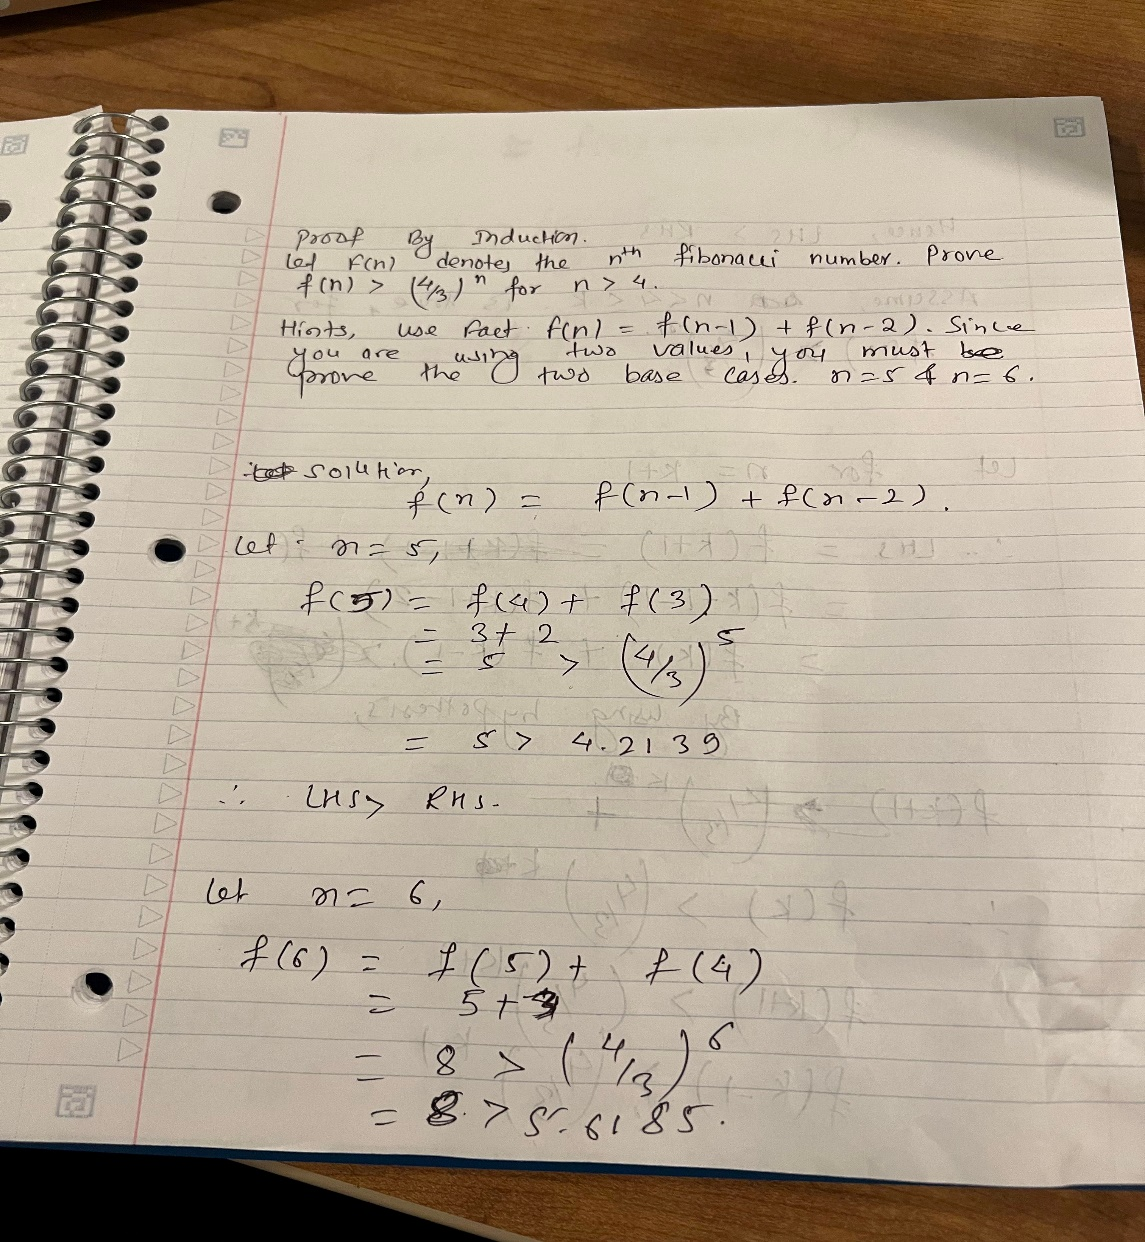 Proof By Induction.
Let F(n) denotes the nth fibonacci number. Prove
f(n) > (4/3)^n for n > 4.
Hints, use fact f(n) = f(n-1) + f(n-2). Since
you are using two values, you must
prove the two base cases. n=5 & n=6.
solution,
f(n) = f(n-1) + f(n-2).
Let n = 5,
f(5) = f(4) + f(3)
= 3+2
= 5 > (4/3)^5
= 5 > 4.2139
∴ LHS > RHS.
Let n = 6,
f(6) = f(5) + f(4)
= 5+3
= 8 > (4/3)^6
= 8 > 5.6185.